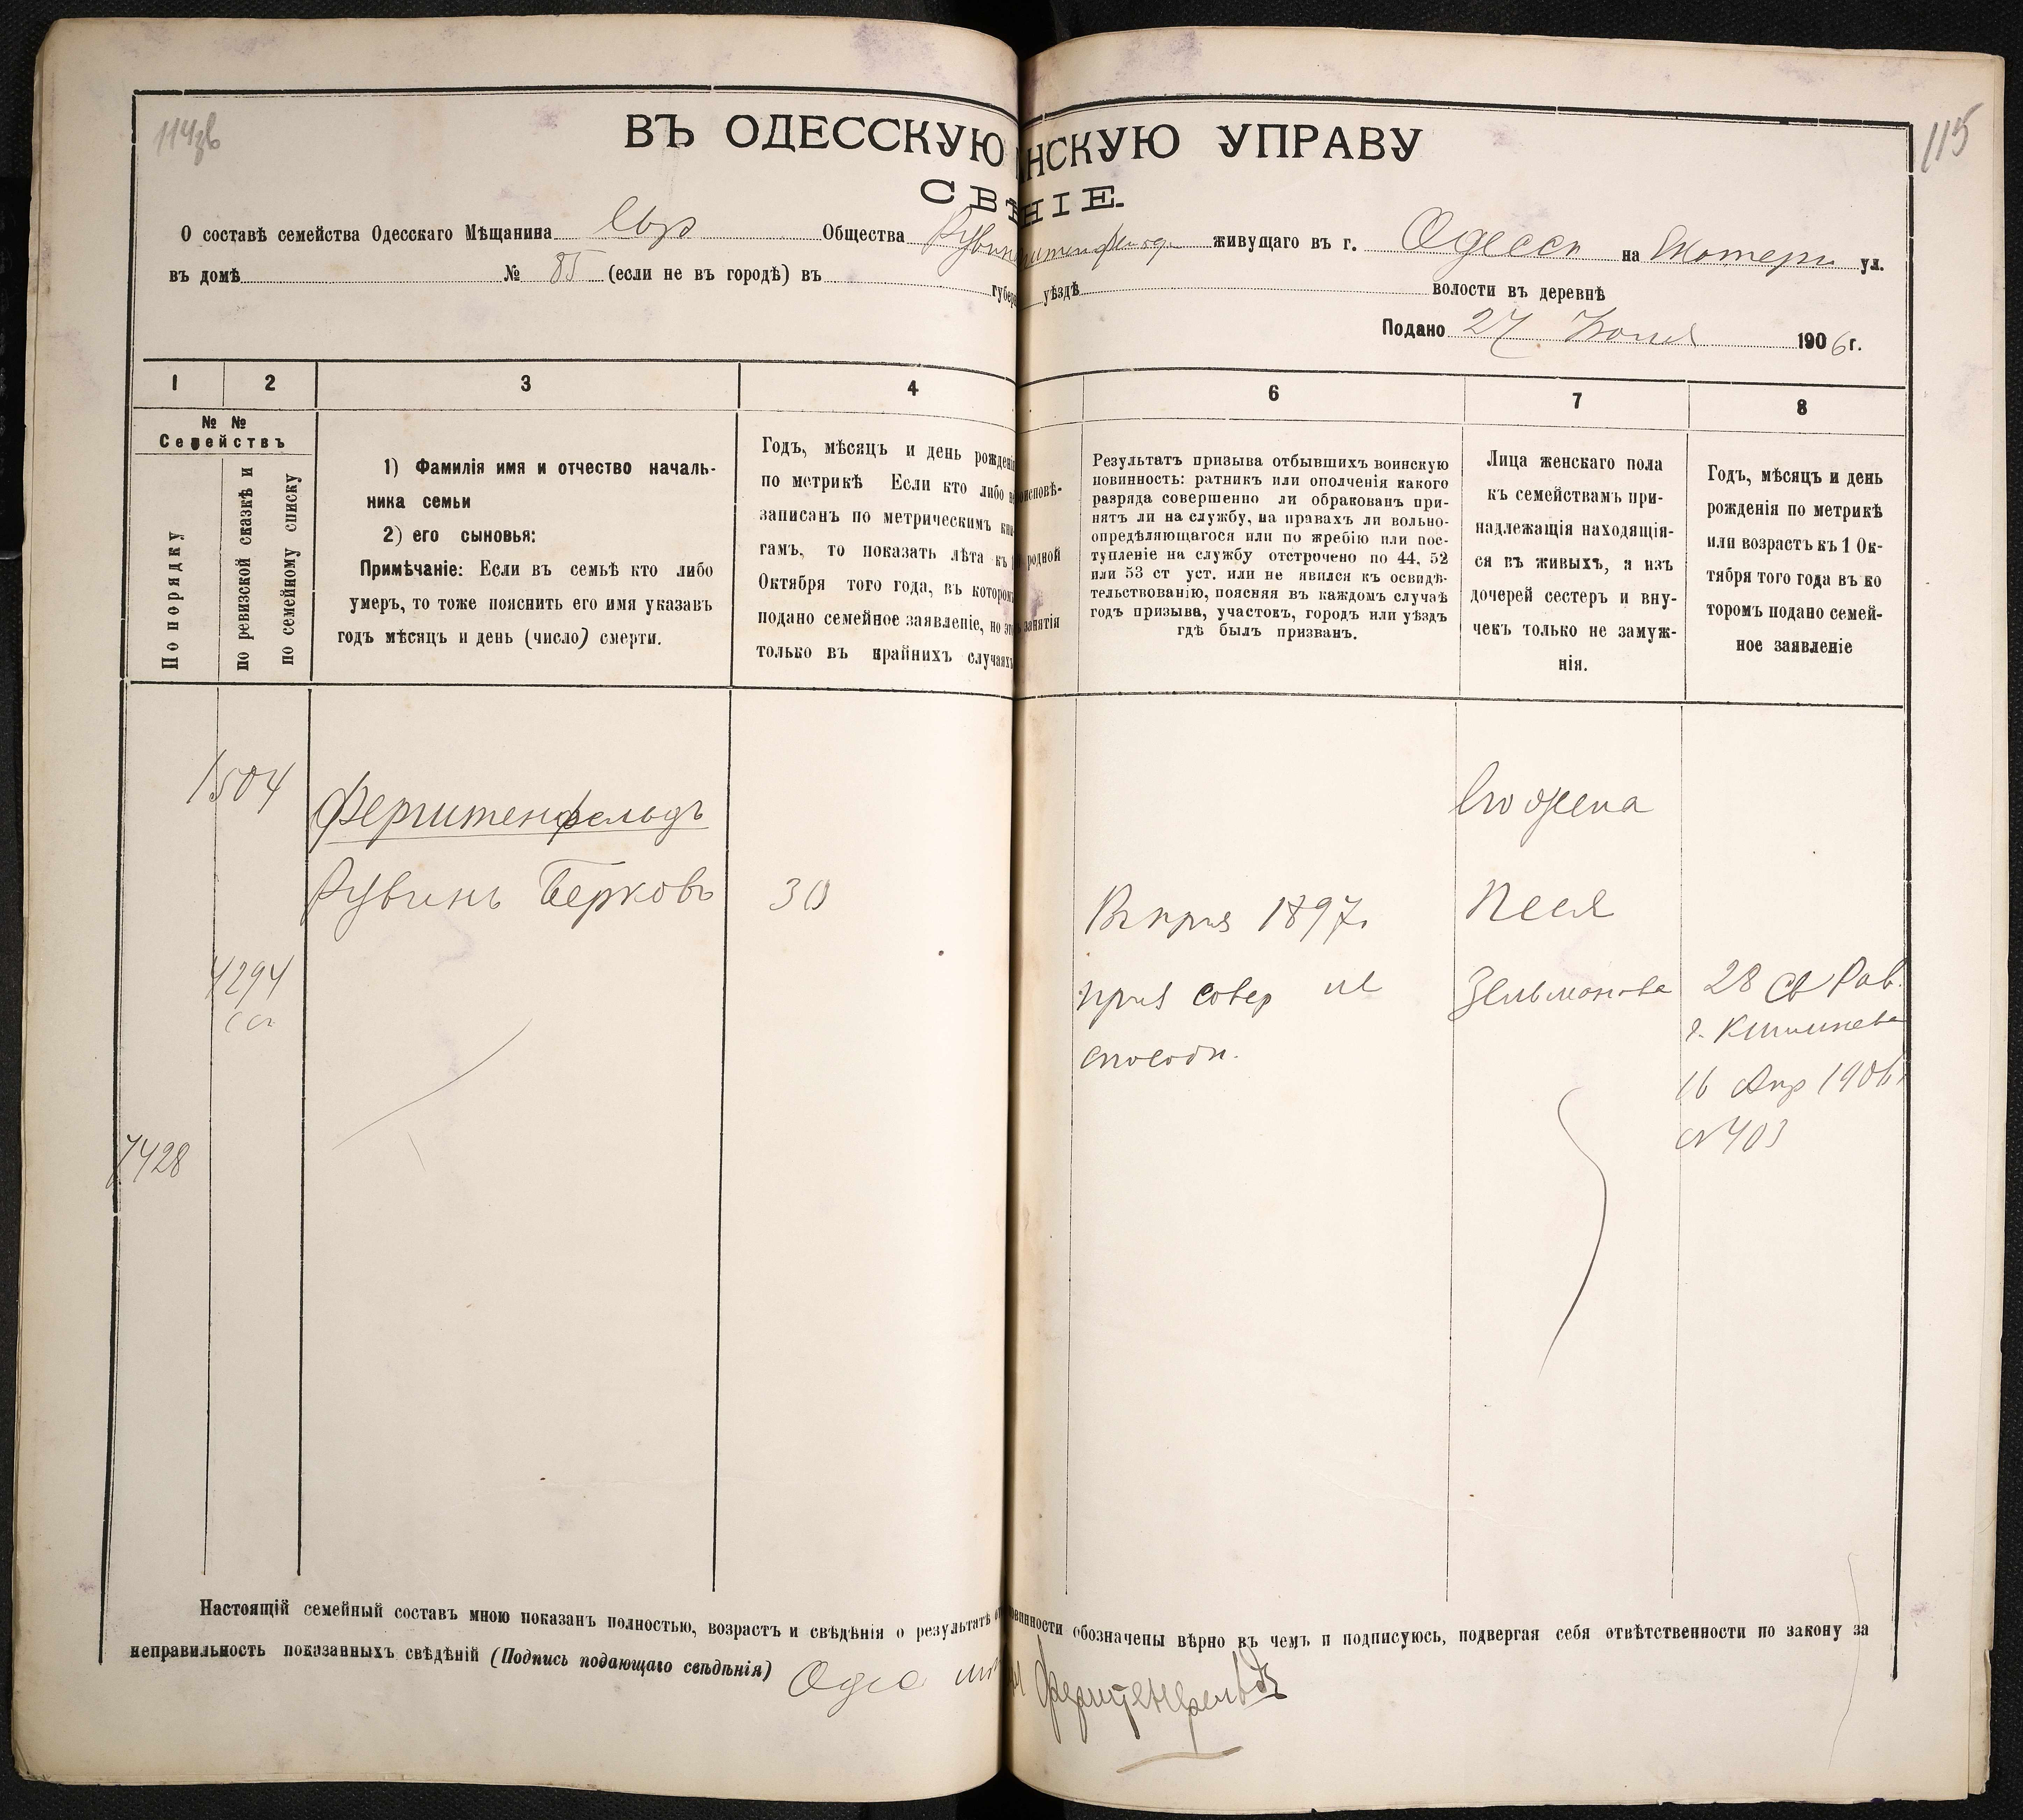 114зв
115
ВЪ ОДЕССКУЮ НСКУЮ УПРАВУ
СВѢ НІЕ.
О составѣ семейства Одесскаго Мѣщанина Евр Общества Рувин штенфельд живущаго въ г. Одессѣ на Екатерин ул.
въ домѣ № 85 (если не въ городѣ) въ губер уѣздѣ волости въ деревнѣ
Подано 27 Іюля 1906 г.
1 2 3 4 6 7 8
№ №
Семействъ
По порядку
по ревизской сказкѣ и
по семейному списку
1) Фамилія имя и отчество началь-
ника семьи
2) его сыновья:
Примѣчаніе: Если въ семьѣ кто либо
умеръ, то тоже пояснить его имя указавъ
годъ мѣсяцъ и день (число) смерти.
Годъ, мѣсяцъ и день рожденія
по метрикѣ Если кто либо не
записанъ по метрическимъ кни-
гамъ, то показать лѣта къ 1
Октября того года, въ которомъ
подано семейное заявленіе, но это
только въ крайнихъ случаяхъ
оисповѣ-
родной
занятія
Результатъ призыва отбывшихъ воинскую
повинность: ратникъ или ополченія какого
разряда совершенно ли обракованъ при-
нятъ ли на службу, на правахъ ли вольно-
опредѣляющагося или по жребію или пос-
тупленіе на службу отстрочено по 44, 52
или 53 ст уст. или не явился къ освидѣ-
тельствованію, поясняя въ каждомъ случаѣ
годъ призыва, участокъ, городъ или уѣздъ
гдѣ былъ призванъ.
Лица женскаго пола
къ семействамъ при-
надлежащія находящія-
ся въ живыхъ, а изъ
дочерей сестеръ и вну-
чекъ только не замуж-
нія.
Годъ, мѣсяцъ и день
рожденія по метрикѣ
или возрастъ къ 1 Ок-
тября того года въ ко
торомъ подано семей-
ное заявленіе
1504
Ферштенфельдъ
Его жена
Рувинъ Берковъ
30
Въ приз 1897г.
Песя
4294
сп
приз совер не
Зельманова
28 св Рав.
г. Кишинева
способн.
16 Апр 1906г
№ 403
7428
Настоящій семейный составъ мною показанъ полностью, возрастъ и свѣдѣнія о результатѣ о повинности обозначены вѣрно въ чемъ и подписуюсь, подвергая себя отвѣтственности по закону за
неправильность показанныхъ свѣдѣній (Подпись подающаго свѣдѣнія) Одес Ферштенфельдъ